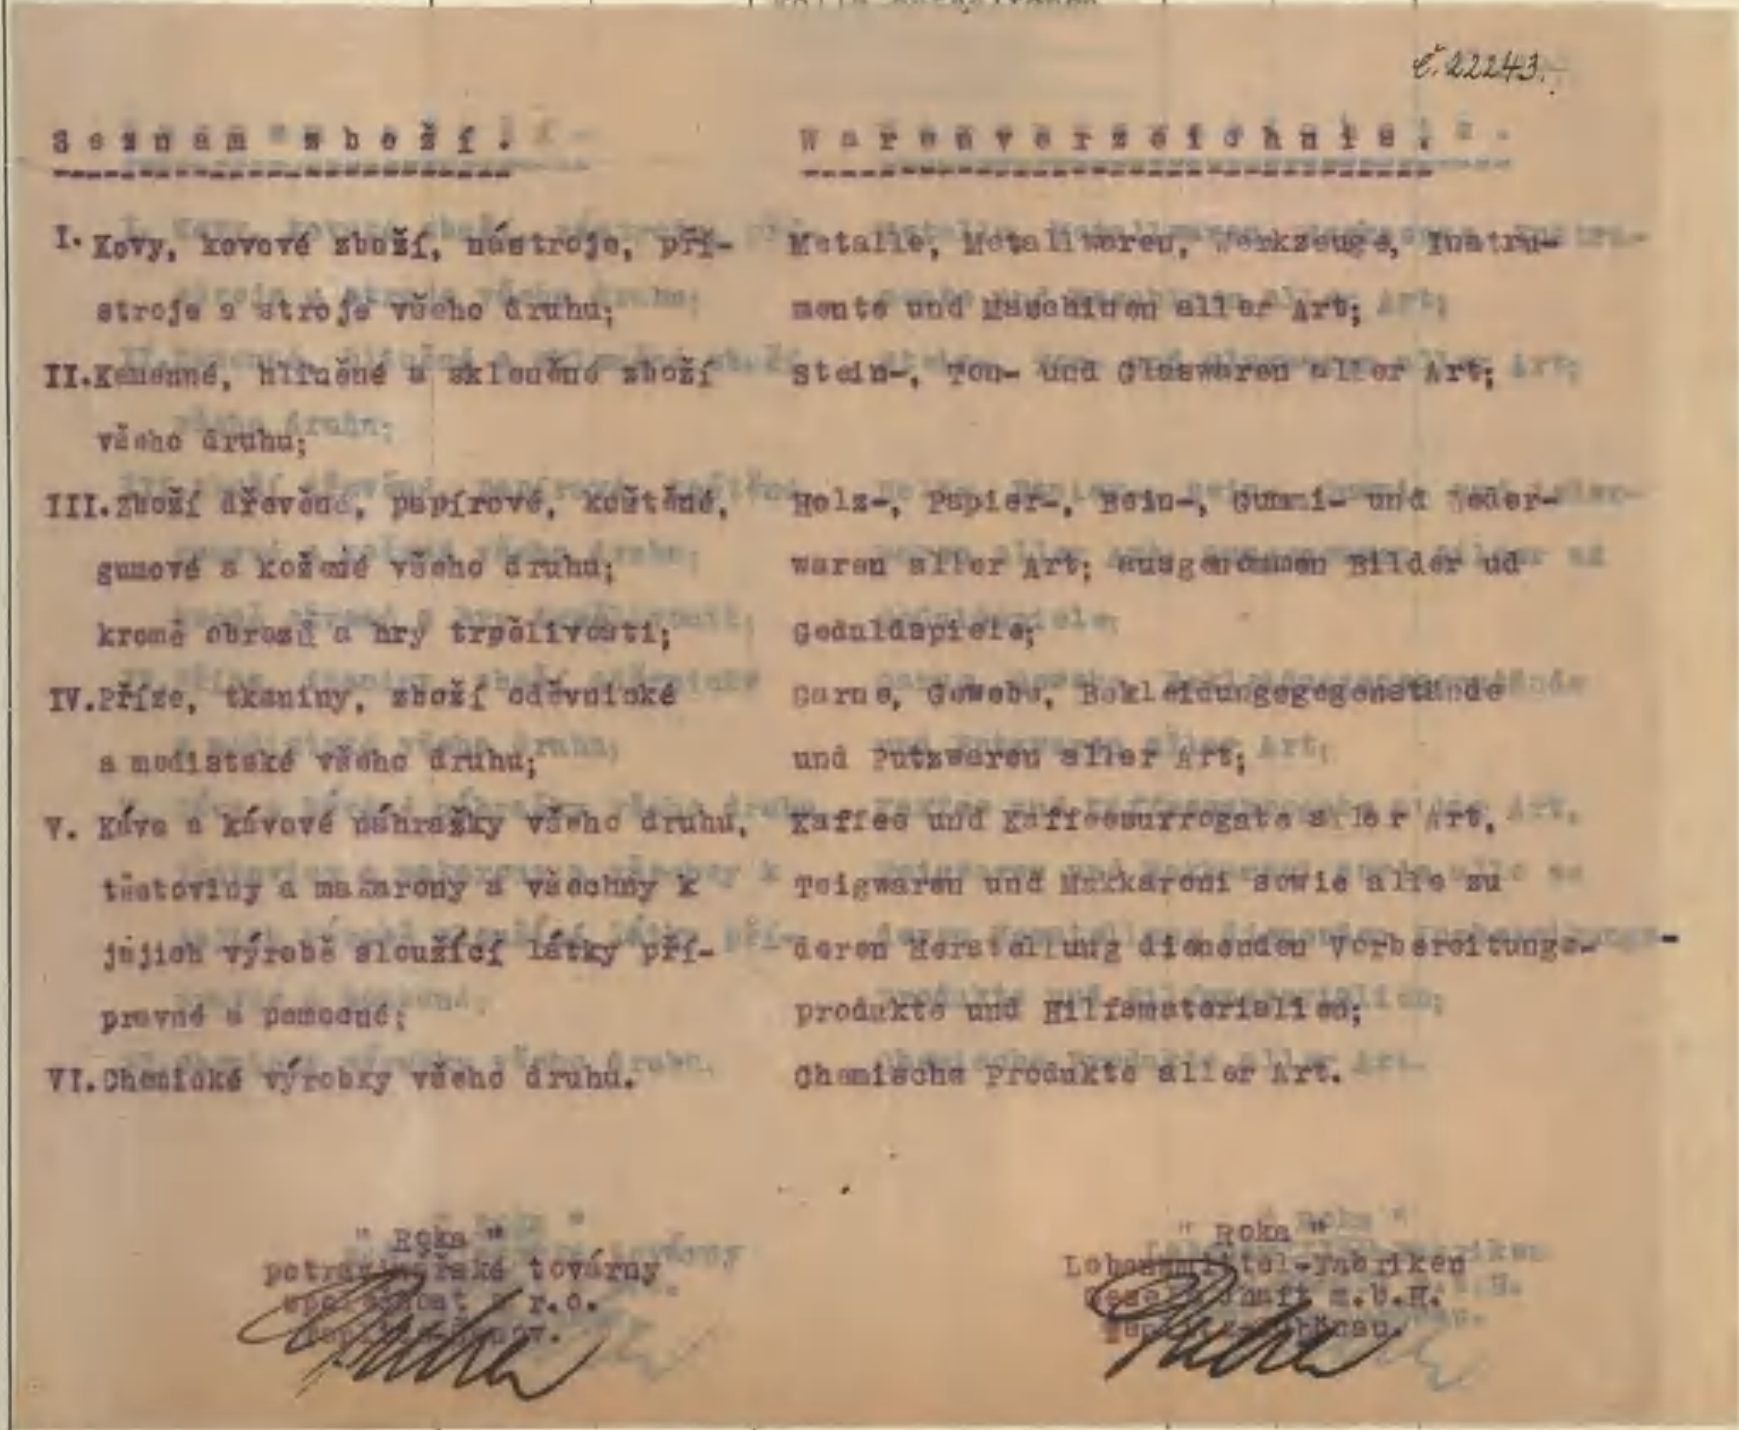 č. 22243.
Seznam zboží.
I. Kovy, kovové zboží, nástroje, pří-
stroje a stroje všeho druhu;
II. Kamenné, hliněné a skleněné zboží
všeho druhu;
III. Zboží dřevěné, papírové, koštěné,
gumové a kožené všeho druhu;
kromě obrazů a hry trpělivosti;
IV. Příze, tkaniny, zboží oděvnické
a modistské všeho druhu;
V. Káva a kávové náhražky všeho druhu,
těstoviny a makarony a všechny k
jejich výrobě sloužící látky pří-
pravné a pomocné;
VI. Chemické výrobky všeho druhu.
" Roka "
potravinářské továrny
společnost s r.o.
Warenverzeichnis.
Metalle, Metallwaren, Werkzeuge, Instru-
mente und Maschinen aller Art;
Stein-, Ton- und Glaswaren aller Art;
Holz-, Papier-, Bein-, Gummi- und Leder-
waren aller Art; ausgenommen Bilder ud
Geduldspiele;
Garne, Gewebe, Bekleidungsgegenstände
und Putzwaren aller Art;
Kaffee und Kaffeesurrogate aller Art,
Teigwaren und Makkaroni sowie alle zu
deren Herstellung dienenden Vorbereitungs-
produkte und Hilfsmaterialien;
Chemische Produkte aller Art.
" Roka "
Lebensmittel-Fabriken
Gesellschaft m.b.H.